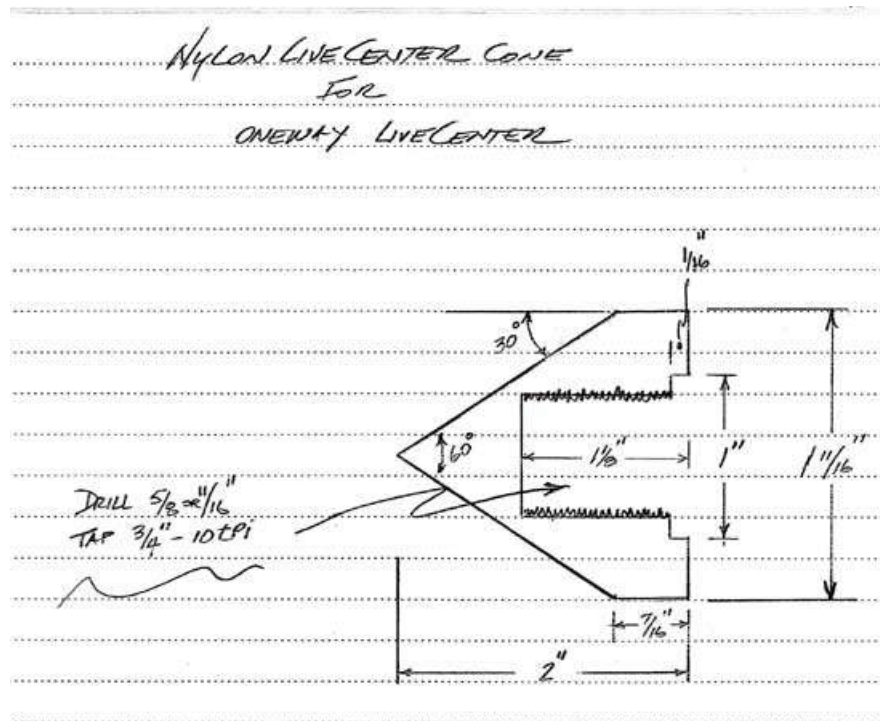 NYLON LIVE CENTER CONE
FOR
ONEWAY LIVE CENTER
1/16"
30°
60°
1 1/8"
1"
1 11/16"
DRILL 5/8 OR 11/16"
TAP 3/4" - 10 tpi
7/16"
2"